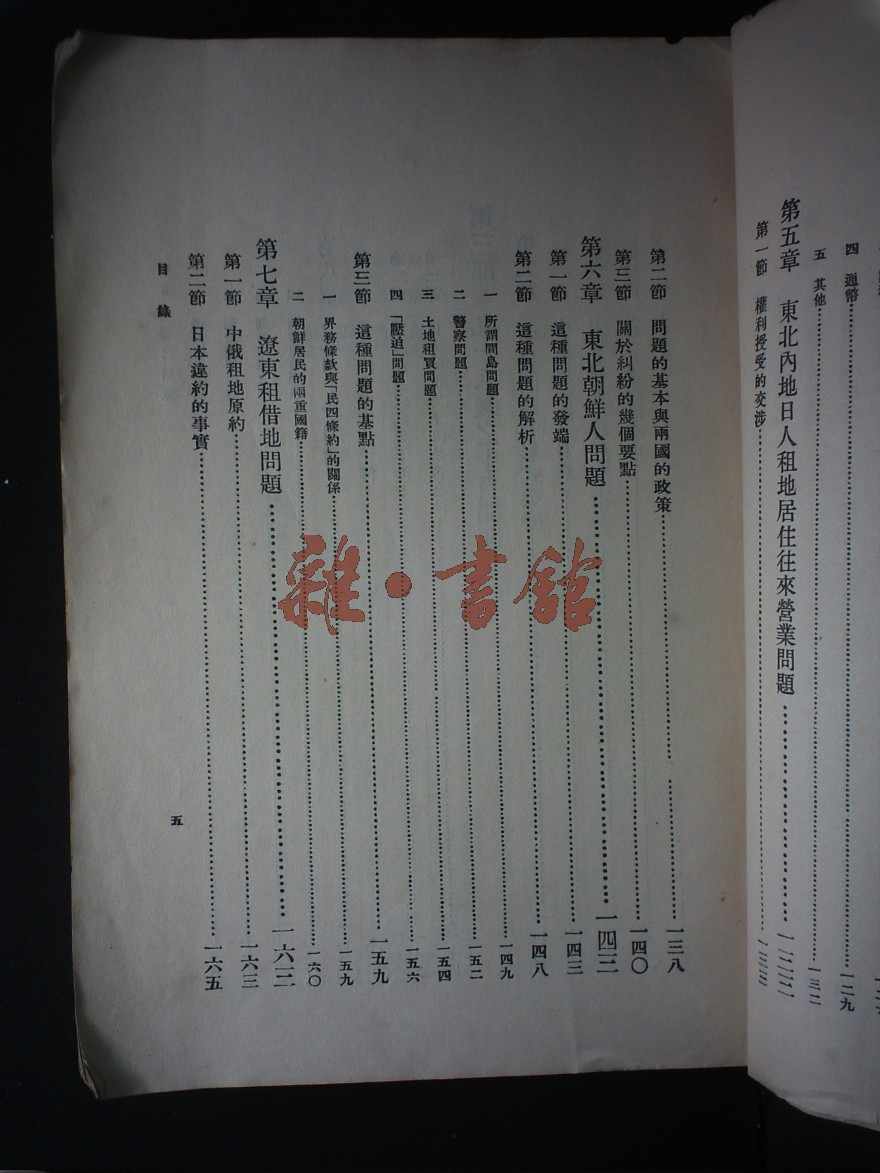 四 通幣……一二九
五 其他……一三二
第五章 東北內地日人租地居住往來營業問題……一三三
第一節 權利授受的交涉……一三三
第二節 問題的基本與兩國的政策……一三八
第三節 關於糾紛的幾個要點……一四〇
第六章 東北朝鮮人問題……一四三
第一節 這種問題的發端……一四三
第二節 這種問題的解析……一四八
一 所謂間島問題……一四九
二 警察問題……一五二
三 土地租買問題……一五四
四 「壓迫」問題……一五六
第三節 這種問題的基點……一五九
一 界務條款與「民四條約」的關係……一五九
二 朝鮮居民的兩重國籍……一六〇
第七章 遼東租借地問題……一六三
第一節 中俄租地原約……一六三
第二節 日本違約的事實……一六五
目錄 五
雜·書館